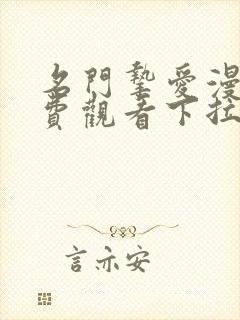 名門摯愛漫
費觀看下拉
言亦安